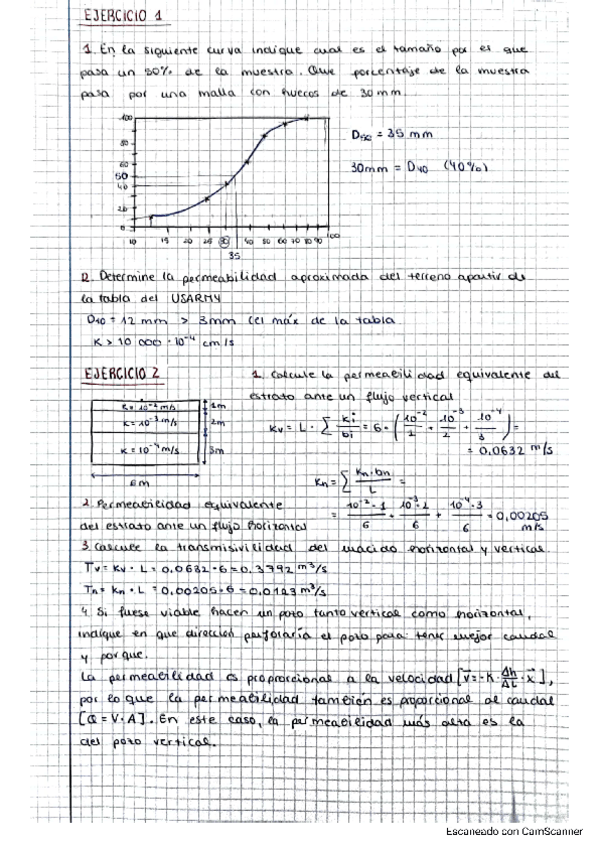 EJERCICIO 1
1. En la siguiente curva indique cual es el tamaño por el que
pasa un 50% de la muestra. Que porcentaje de la muestra
pasa por una malla con huecos de 30 mm.
100
80
60
50
40
20
0
10 15 20 25 30 40 50 60 70 80 90 100
35
D50 = 35 mm
30mm = D40 (40%)
2. Determine la permeabilidad aproximada del terreno apartir de
la tabla del USARMY
D10 = 12 mm > 3mm (el máx de la tabla
K > 10 000 · 10^-4 cm/s
EJERCICIO 2
1. Calcule la permeabilidad equivalente del
estrato ante un flujo vertical
K = 10^-2 m/s 1m
K = 10^-3 m/s 2m
K = 10^-4 m/s 3m
6m
Kv = L · Σ Ki/bi = 6 · (10^-2/1 + 10^-3/2 + 10^-4/3) =
= 0,0632 m/s
Kn = Σ Kn·bn/L =
= 10^-2·1/6 + 10^-3·2/6 + 10^-4·3/6 = 0,00205 m/s
2. Permeabilidad equivalente
del estrato ante un flujo horizontal
3. Calcule la transmisivilidad del macido horizontal y vertical.
Tv = Kv · L = 0,0632 · 6 = 0,3792 m³/s
Tn = Kn · L = 0,00205 · 6 = 0,0123 m³/s
4. Si fuese viable hacen un pozo tanto vertical como horizontal,
indique en que dirección perforaría el pozo para tener mejor caudal
y porque.
La permeabilidad es proporcional a la velocidad [v = -K · Δh/ΔL · x],
por lo que la permeabilidad también es proporcional al caudal
[Q = V·A]. En este caso, la permeabilidad más alta es la
del pozo vertical.
Escaneado con CamScanner